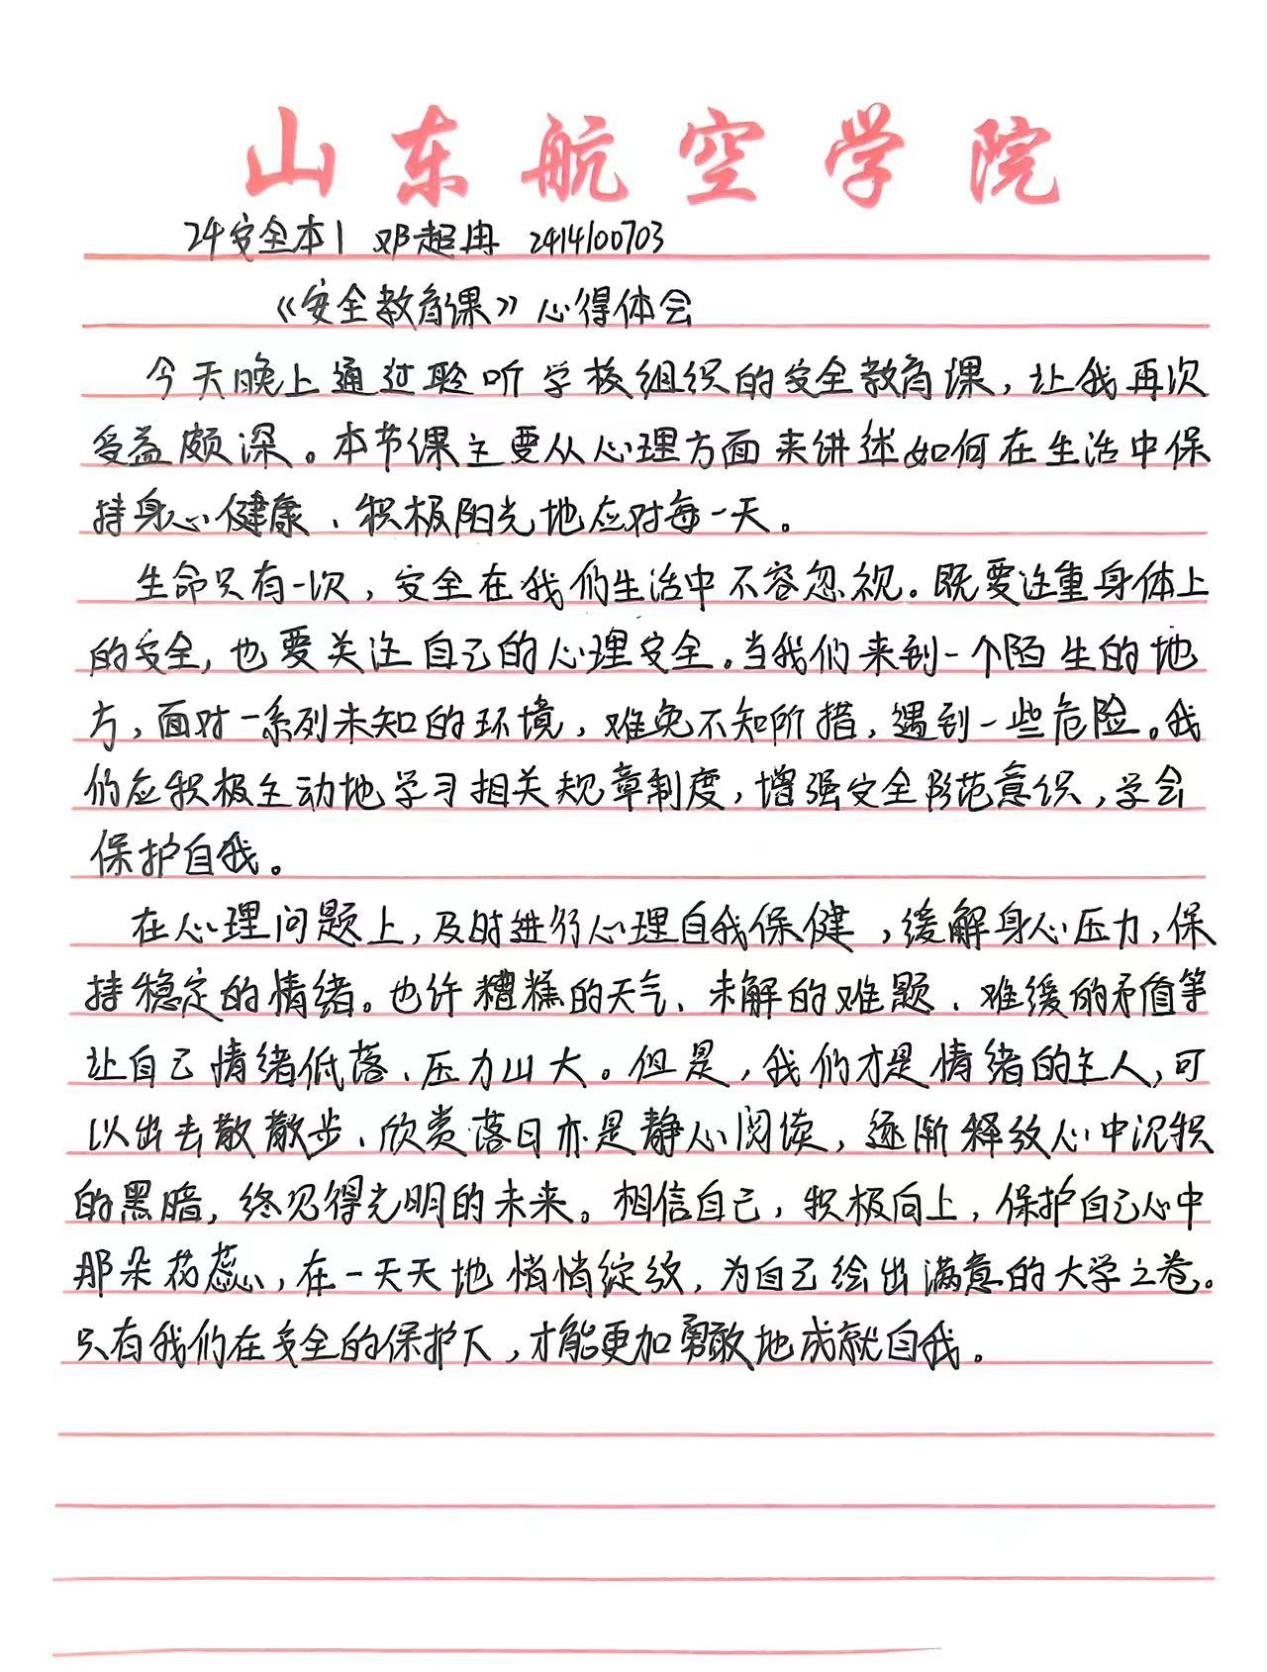 山东航空学院
24安全本1 邓超冉 2414100703
《安全教育课》心得体会
今天晚上通过聆听学校组织的安全教育课，让我再次
受益颇深。本节课主要从心理方面来讲述如何在生活中保
持身心健康、积极阳光地应对每一天。
生命只有一次，安全在我们生活中不容忽视。既要注重身体上
的安全，也要关注自己的心理安全。当我们来到一个陌生的地
方，面对一系列未知的环境，难免不知所措，遇到一些危险。我
们应积极主动地学习相关规章制度，增强安全防范意识，学会
保护自我。
在心理问题上，及时进行心理自我保健，缓解身心压力，保
持稳定的情绪。也许糟糕的天气、未解的难题、难缓的矛盾等
让自己情绪低落、压力山大。但是，我们才是情绪的主人，可
以出去散散步、欣赏落日亦是静心阅读，逐渐释放心中沉积
的黑暗，终见得光明的未来。相信自己，积极向上，保护自己心中
那朵花蕊，在一天天地悄悄绽放，为自己绘出满意的大学之卷。
只有我们在安全的保护下，才能更加勇敢地成就自我。